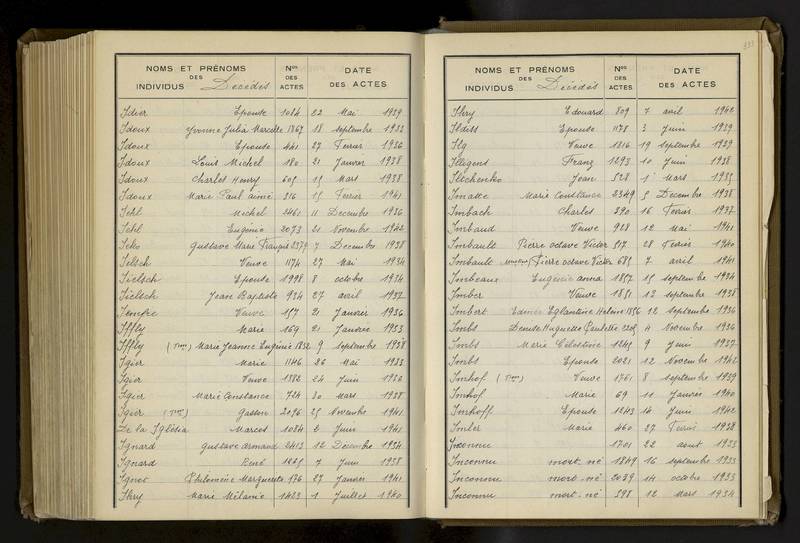 NOMS ET PRÉNOMS DES INDIVIDUS Décédés | Nos DES ACTES | DATE DES ACTES
Idier Epouse 1084 22 Mai 1939
Idoux Yvonne Julia Marcelle 1867 18 septembre 1933
Idoux Epouse 441 27 Fevrier 1936
Idoux Louis Michel 180 21 Janvier 1938
Idoux Charles Henry 605 15 Mars 1938
Idoux Marie Paul aimé 316 15 Fevrier 1941
Iehl Michel 2461 11 Decembre 1936
Iehl Eugénie 2073 21 Novembre 1942
Ieko Gustave Marie François 2379 7 Decembre 1938
Ieltsch Veuve 1174 27 Mai 1934
Epouse 1998 8 octobre 1934
Jean Baptiste 934 27 avril 1937
Veuve 157 21 Janvier 1936
Iffly Marie 169 21 Janvier 1933
Iffly (Dme) Marie Jeanne Eugénie 1832 9 septembre 1938
Igier Marie 1146 26 Mai 1933
Igier Veuve 1882 24 Juin 1930
Igier Marie Constance 724 30 Mars 1938
Igier Gaston 2096 25 Novembre 1941
De la Iglésia Marcos 1084 2 Juin 1941
Ignard Gustave armand 2413 12 Decembre 1934
Ignard René 7 Juin 1938
Ignot Philomène Marguerite 176 27 Janvier 1941
Ihry Marie Mélanie 1423 1 Juillet 1940
333
NOMS ET PRÉNOMS DES INDIVIDUS Décédés | Nos DES ACTES | DATE DES ACTES
Ihry Edouard 809 7 avril 1942
Ildiss Epouse 1178 3 Juin 1939
Ilg Veuve 1816 19 septembre 1939
Illigens Franz 1293 10 Juin 1938
Iltchenko Jean 528 1 Mars 1935
Imasse Marie Constance 2349 5 Decembre 1938
Imbach Charles 390 16 Fevrier 1937
Imbaud Veuve 928 12 Mai 1941
Imbault Pierre octave Victor 517 28 Fevrier 1940
Imbault Pierre octave Victor 685 7 avril 1941
Imbeaux Eugénie anna 1857 15 septembre 1934
Imber Veuve 1851 13 septembre 1938
Imbert Edmée Eglantine Helene 1856 22 septembre 1936
Imbs Denise Huguette Paulette 2205 4 Novembre 1936
Imbs Marie Célestine 1245 9 Juin 1937
Imbs Epouse 2021 12 Novembre 1942
Imhof Veuve 1761 8 septembre 1939
Imhof Marie 69 11 Janvier 1940
Imhoff Epouse 1243 14 Juin 1942
Imler Marie 460 27 Fevrier 1938
Inconnu 1701 22 aout 1933
Inconnu mort-né 1849 16 septembre 1933
Inconnu mort-né 2039 14 octobre 1933
Inconnu mort-né 598 12 Mars 1934